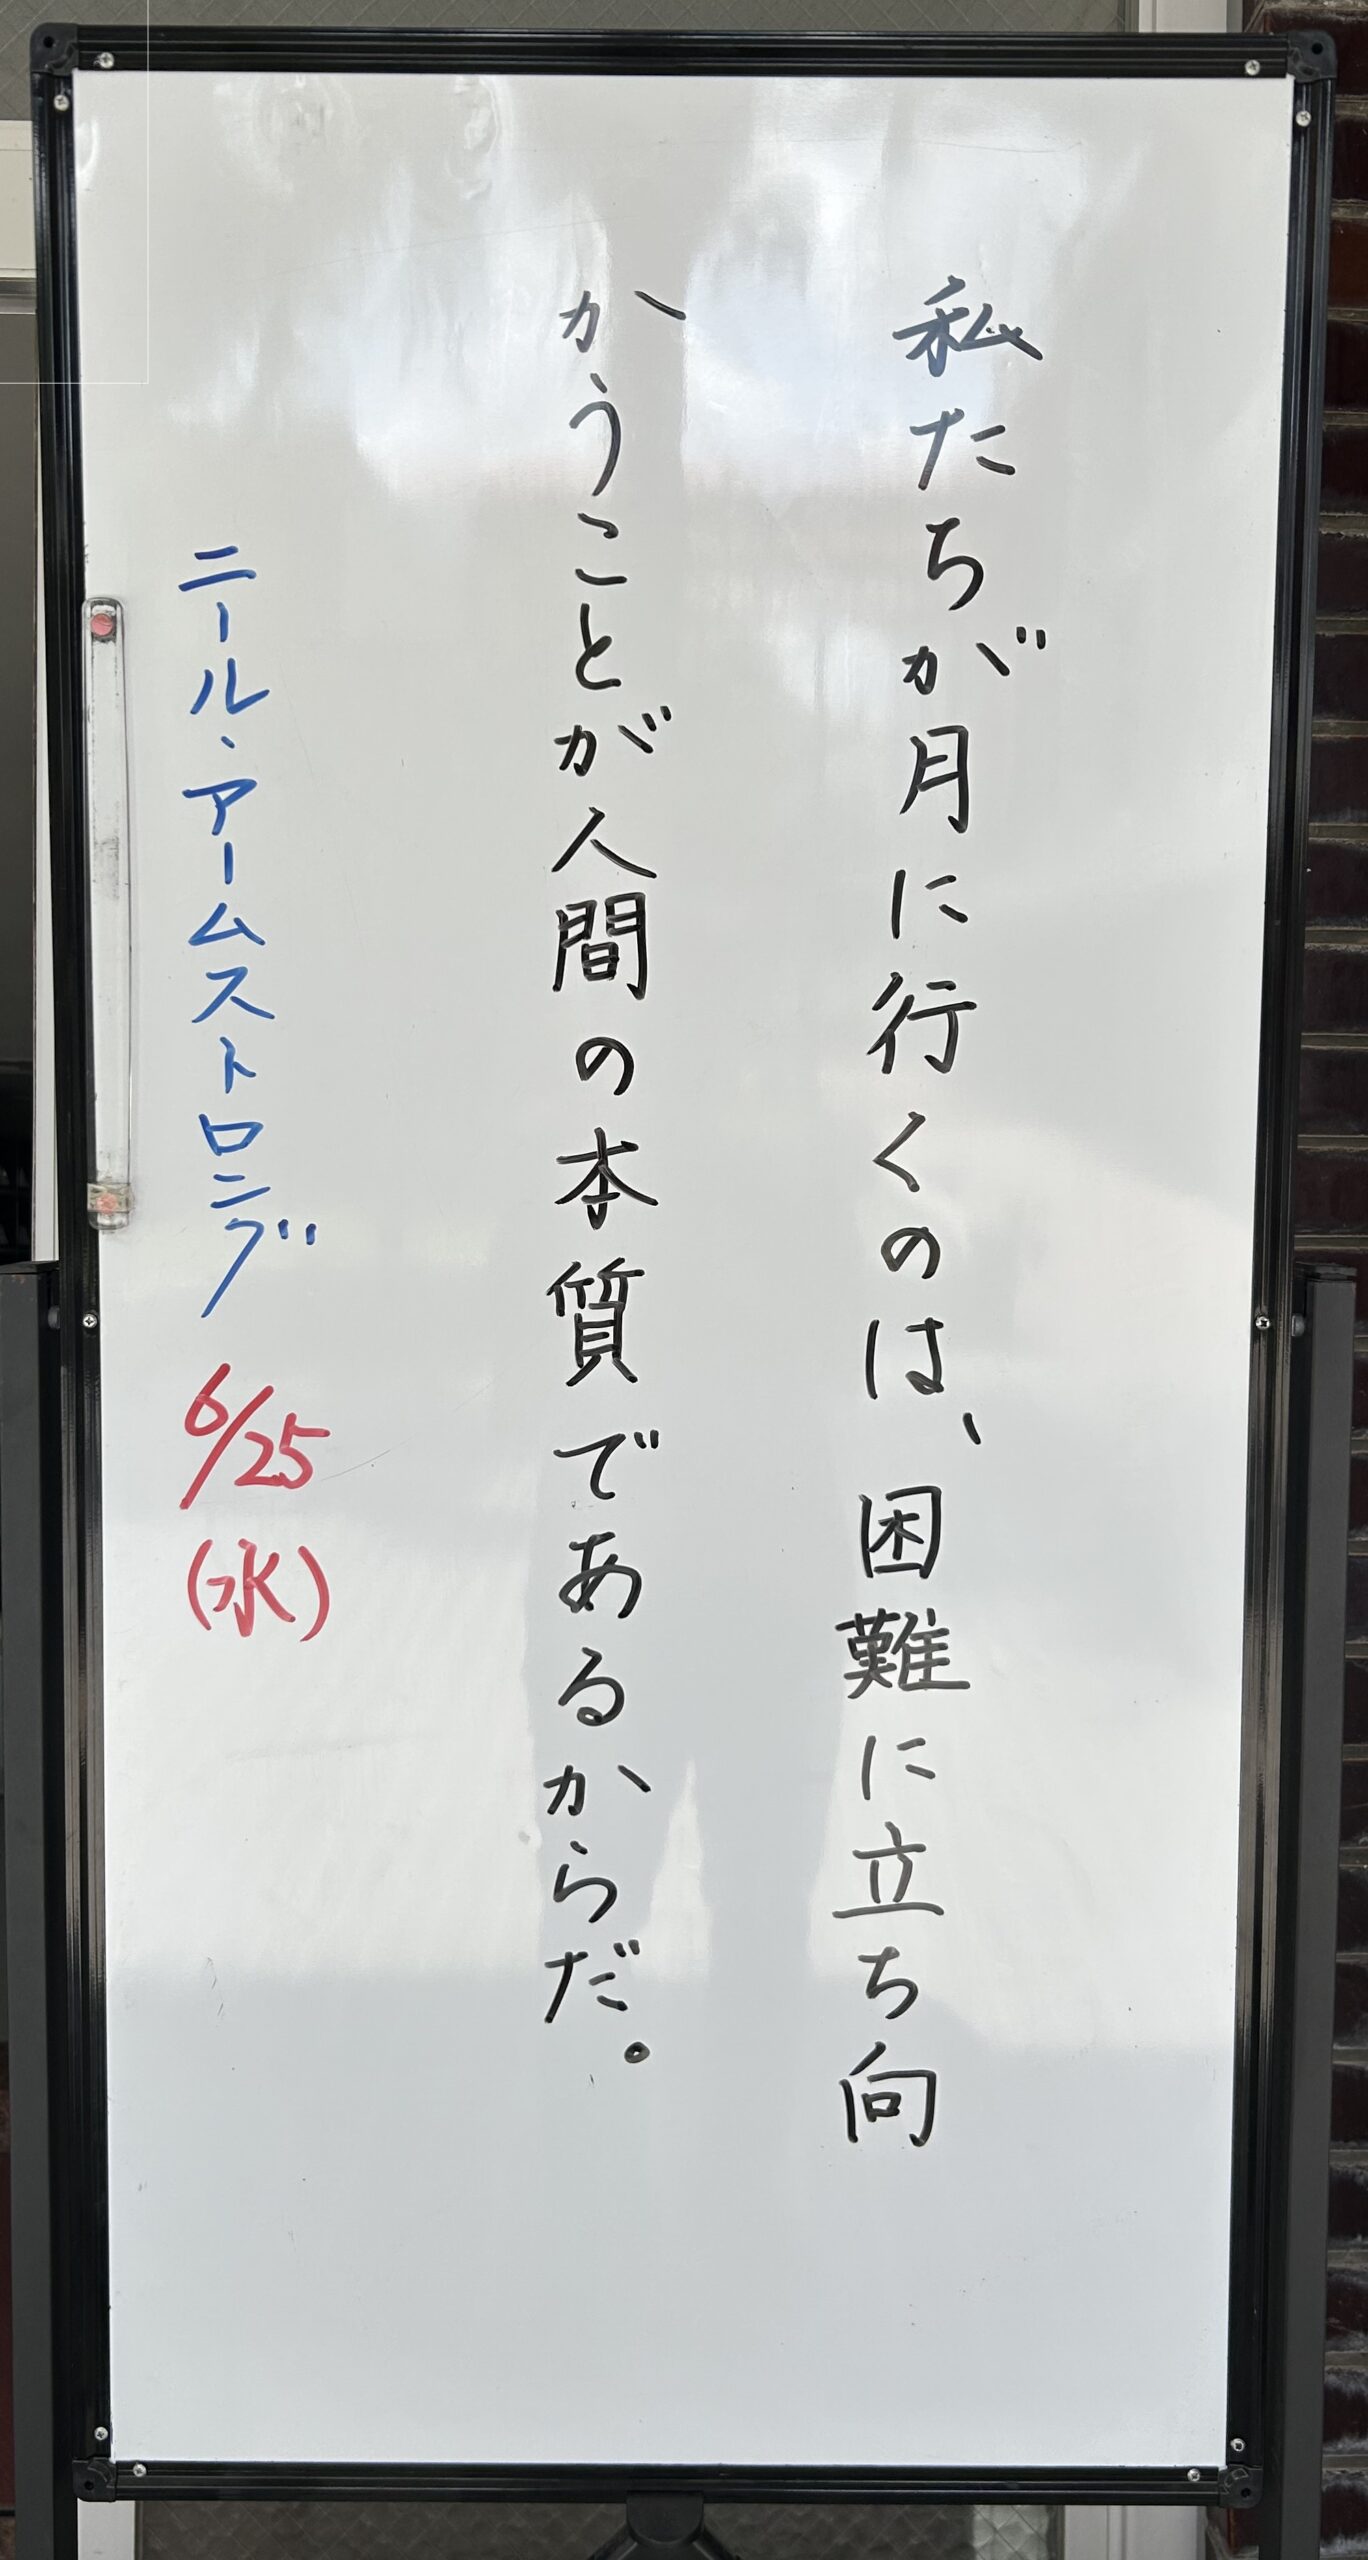 私たちが月に行くのは、困難に立ち向
かうことが人間の本質であるからだ。
ニール・アームストロング 6/25(水)